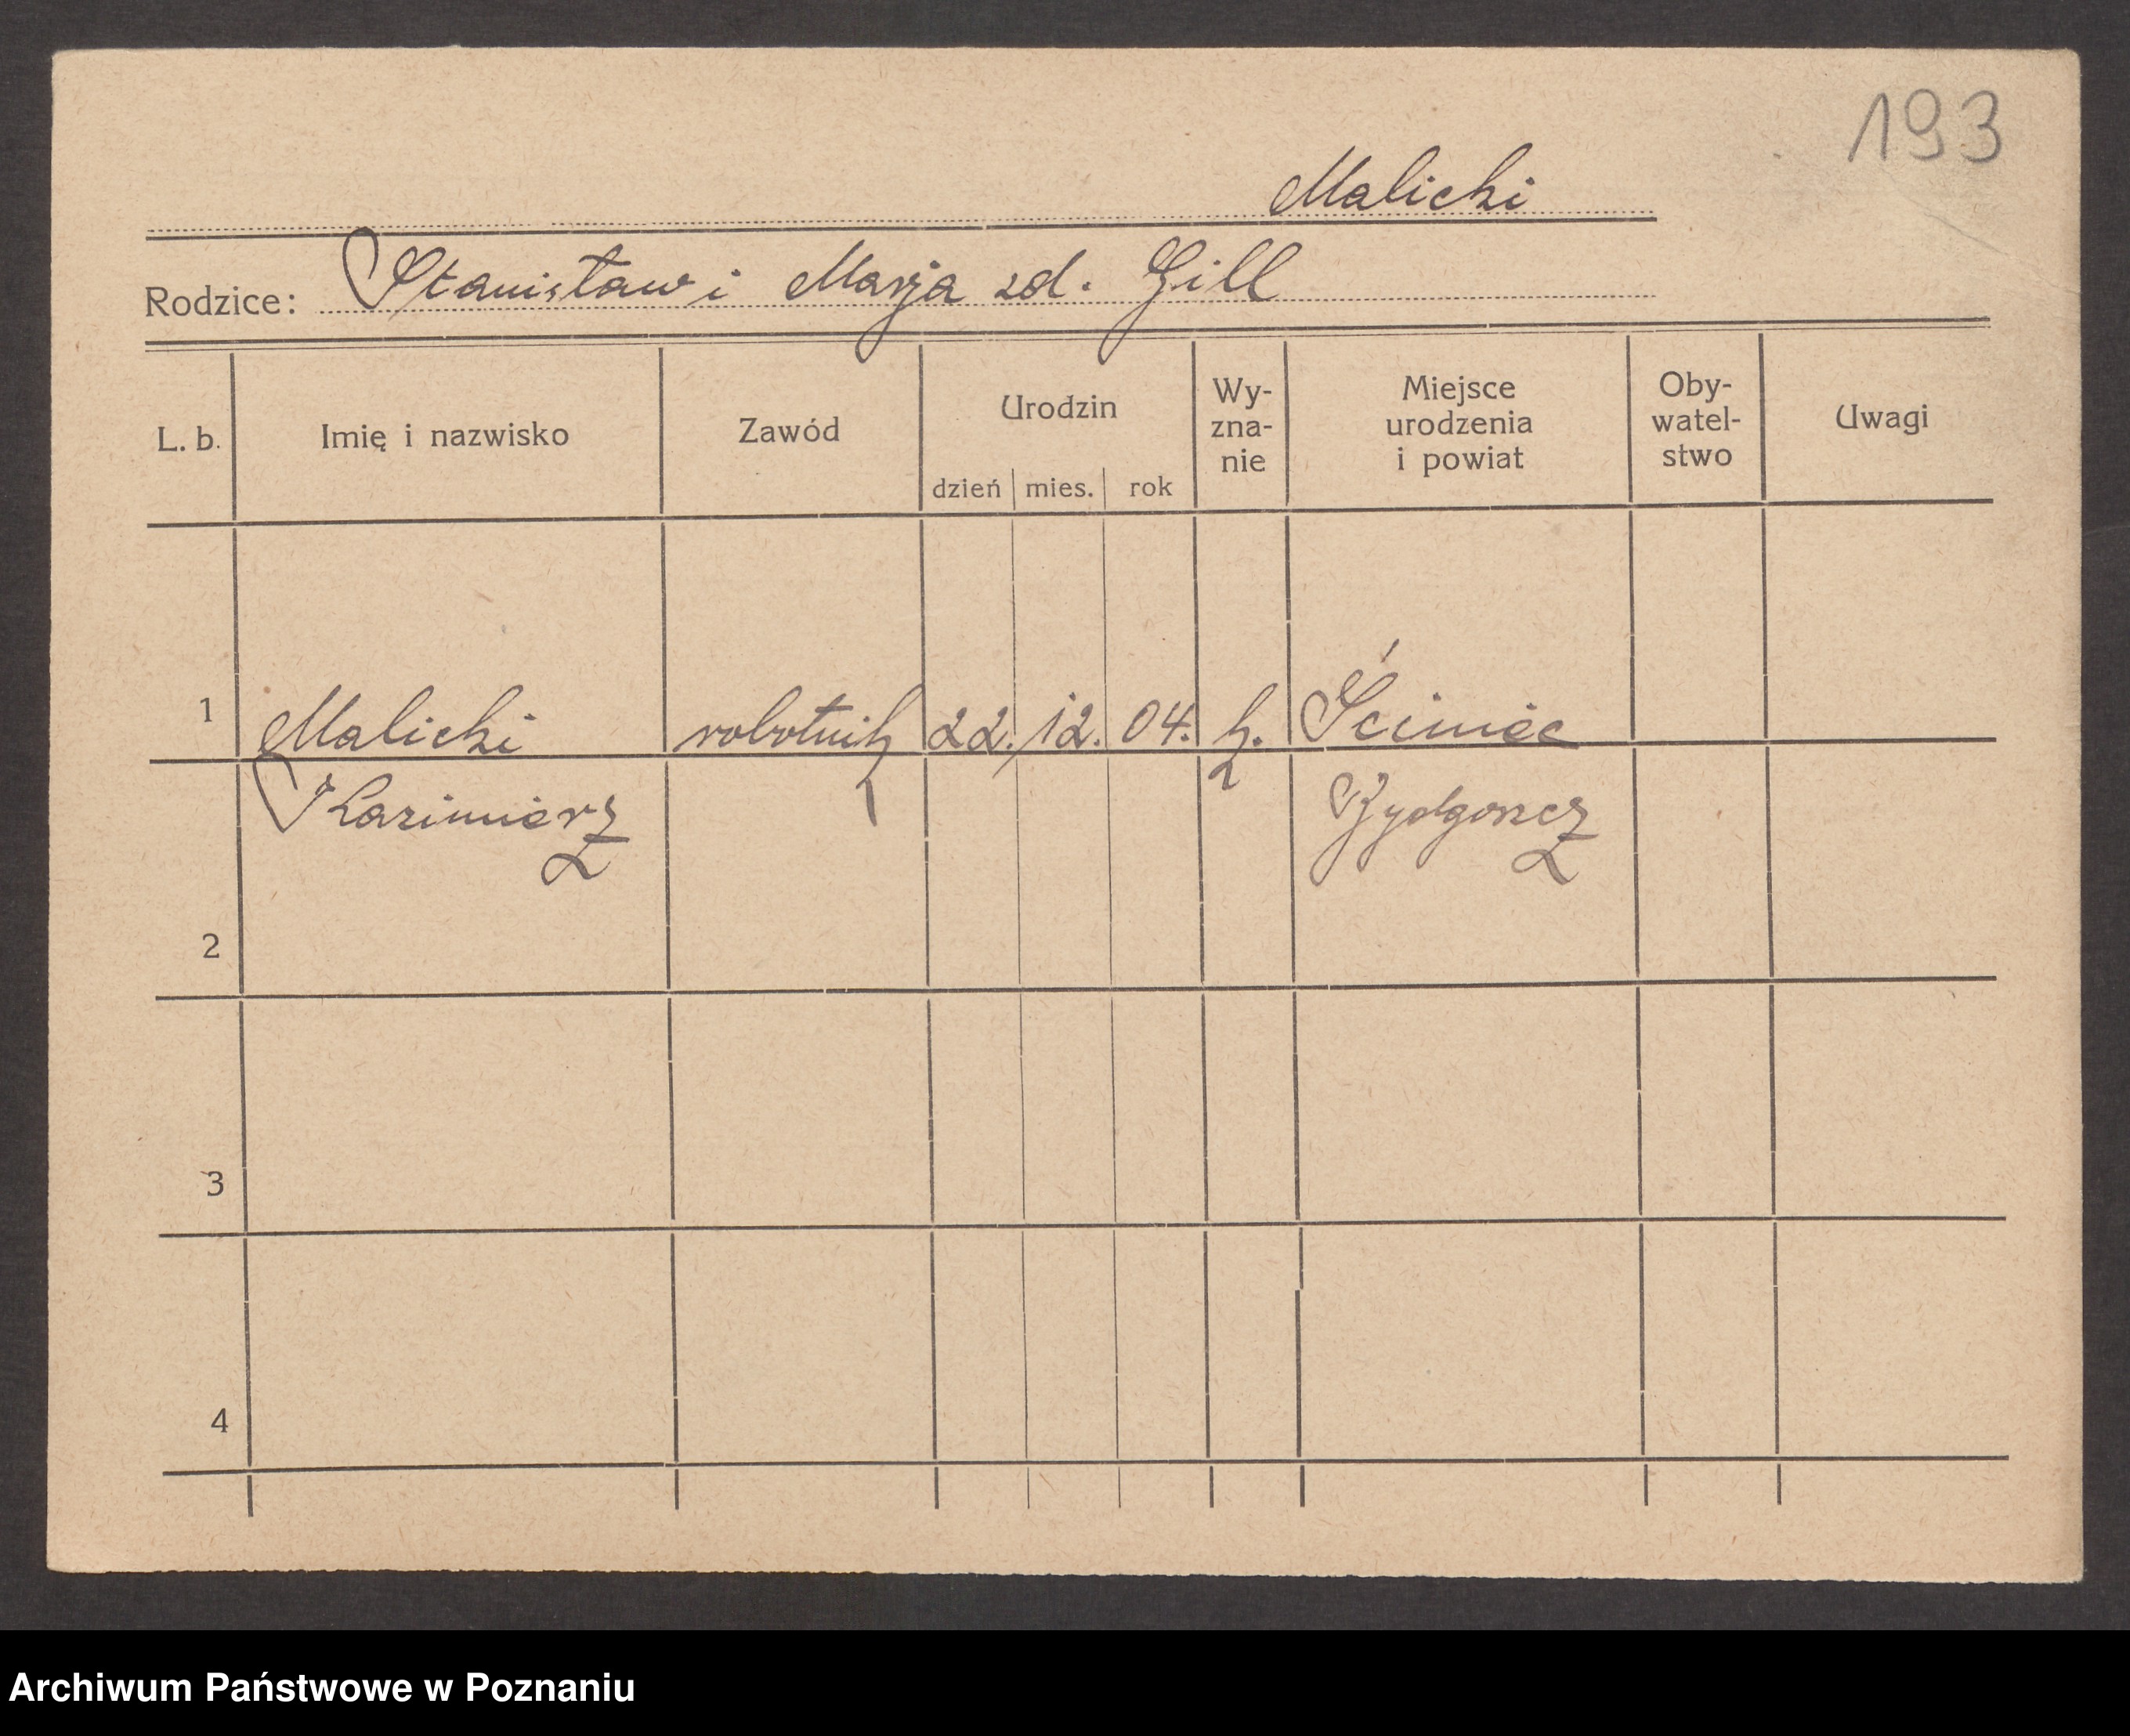 193
Malicki
Rodzice: Stanisław i Marja zd. Gill
L. b. Imię i nazwisko Zawód Urodzin dzień mies. rok Wy-zna-nie Miejsce urodzenia i powiat Oby-watel-stwo Uwagi
1 Malicki robotnik 22. 12. 04. k. Ściniec
Kazimierz Bydgoszcz
2
3
4
Archiwum Państwowe w Poznaniu